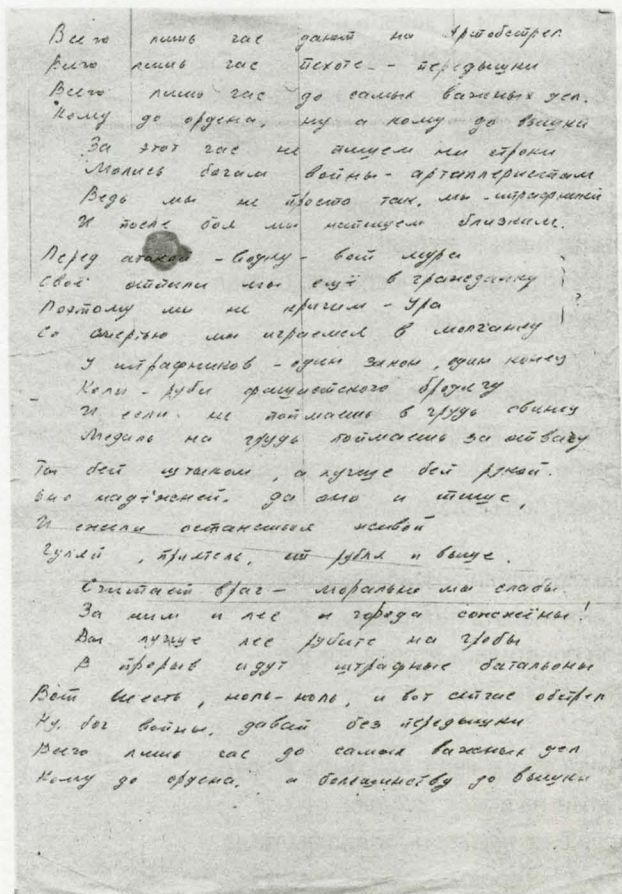 Всего лишь час дают на Артобстрел
Всего лишь час пехоте - передышки
Всего лишь час до самых важных дел.
Кому до ордена, ну а кому до вышки
За этот час не пишем ни строки
Молись богам войны - артиллеристам
Ведь мы не просто так, мы - штрафники
И после боя мы напишем близким.
Перед атакой - водку - вот мура
Своё отпили мы ещё в гражданку
Поэтому мы не кричим - Ура
Со смертью мы играемся в молчанку
?
У штрафников - один закон, один конец
Коли - руби фашистского бродягу
И если не поймаешь в грудь свинец
Медаль на грудь поймаешь за отвагу
Ты бей штыком, а лучше бей рукой.
Оно надёжней, да оно и тише,
И ежели останешься живой
Гуляй, приятель, от рубля и выше.
Считает враг - морально мы слабы.
За ним и лес и города сожжёны!
Вы лучше лес рубите на гробы
В прорыв идут штрафные батальоны
Вот шесть, ноль-ноль, и вот сейчас обстрел
Ну, бог войны, давай без передышки
Всего лишь час до самых важных дел
Кому до ордена, а большинству до вышки